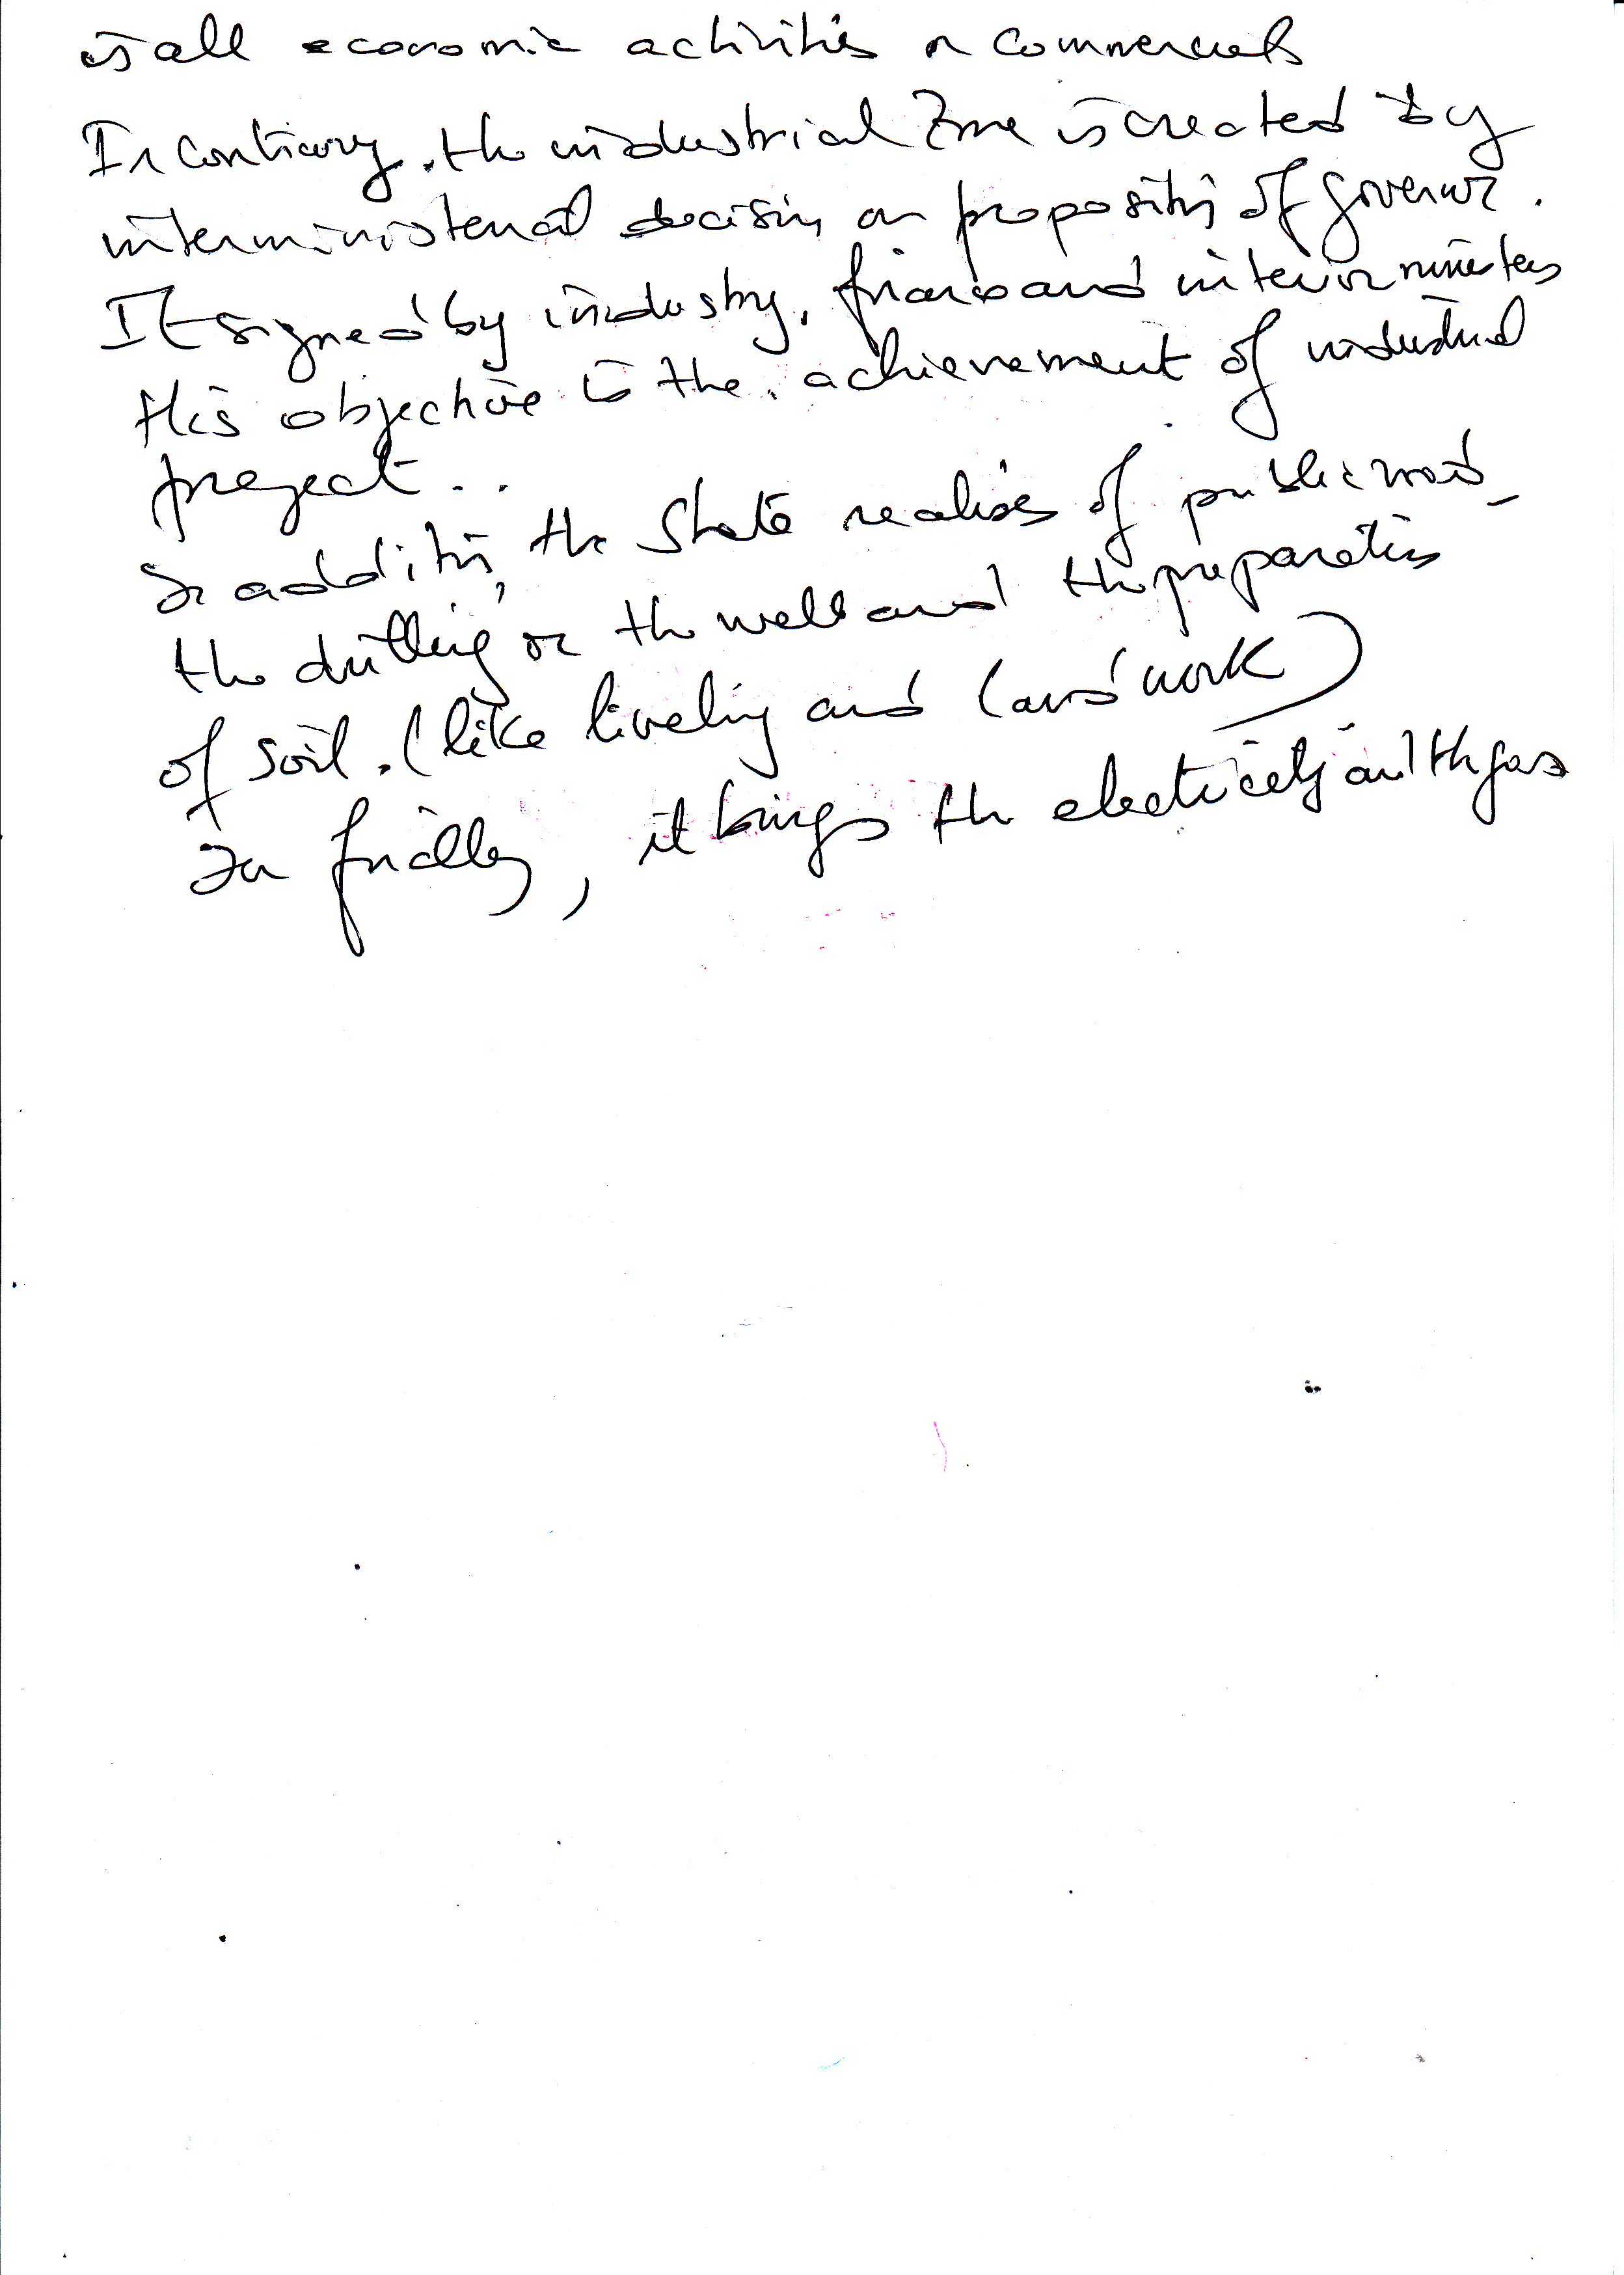 is all economic activities or commercials
In contrary. the industrial Zone is created by
interministerial decision on proposition of governor.
It signed by industry, finance and interior ministers
His objective is the. achievement of industrial
project..
In addition, the State realises of public road_
the drilling or the well and the preparation
of soil. (like liveling and land work)
In finally, it brings the electricity and the gas